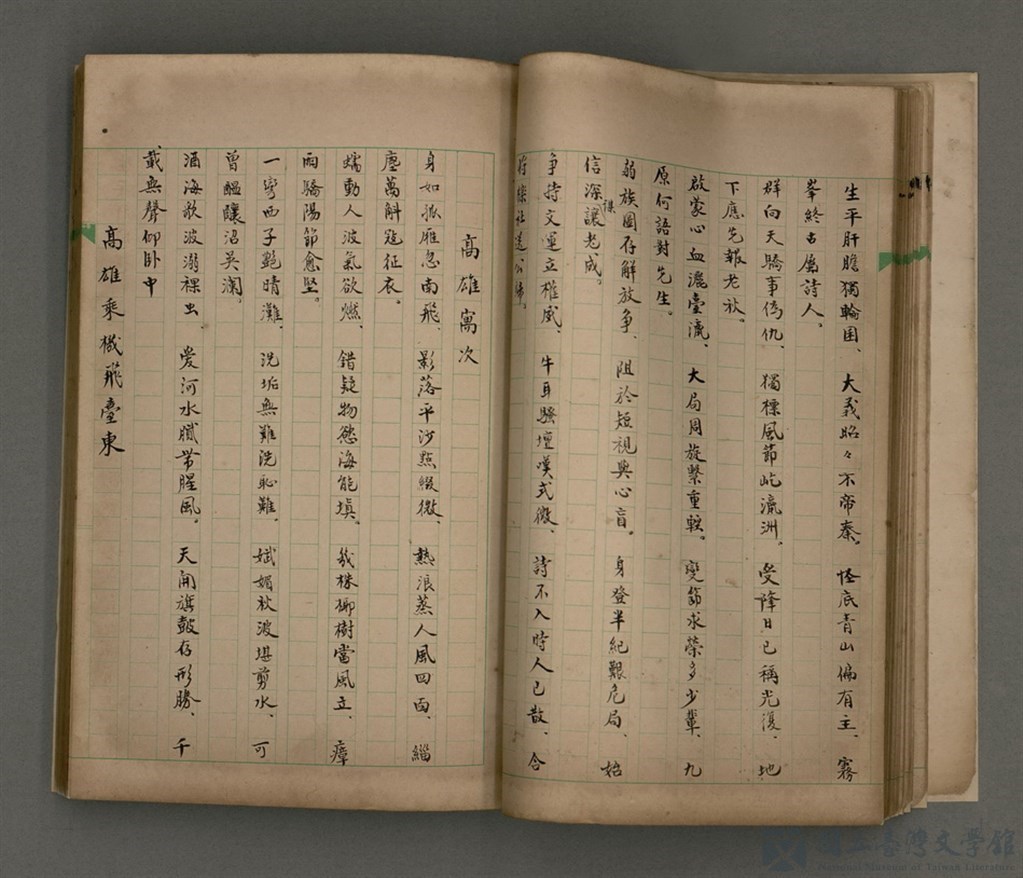 生平肝膽獨輪囷、大義昭々不帝秦。怪底青山偏有主、霧
峯終古屬詩人。
群向天驕事倚仇、獨標風節屹瀛洲。受降日已稱光復、地
下應先報老秋。
啟蒙心血灑臺瀛、大局周旋繫重輕。變節求榮多少輩、九
原何語對先生。
弱族圖存解放爭、阻於短視與心盲。身登半紀艱危局、始
信深謀讓老成。
爭持文運立權威、牛耳騷壇嘆式微、詩不入時人已散、含
高雄寓次
身如孤雁忽南飛、影落平沙點綴微、熱浪蒸人風四面、緇
塵萬斛冦征衣。
蠕動人波氣欲燃、錯疑物慾海能填。幾株椰樹當風立、瘴
雨驕陽節愈堅。
一彎西子艷晴灘、洗垢無難洗恥難。嫵媚秋波堪剪水、可
曾醞釀沼吳瀾。
酒海歌波溺裸虫 愛河水膩帶腥風。天開旗鼓存形勝、千
載無聲仰卧中
高雄乘機飛臺東
國立臺灣文學館
National Museum of Taiwan Literature